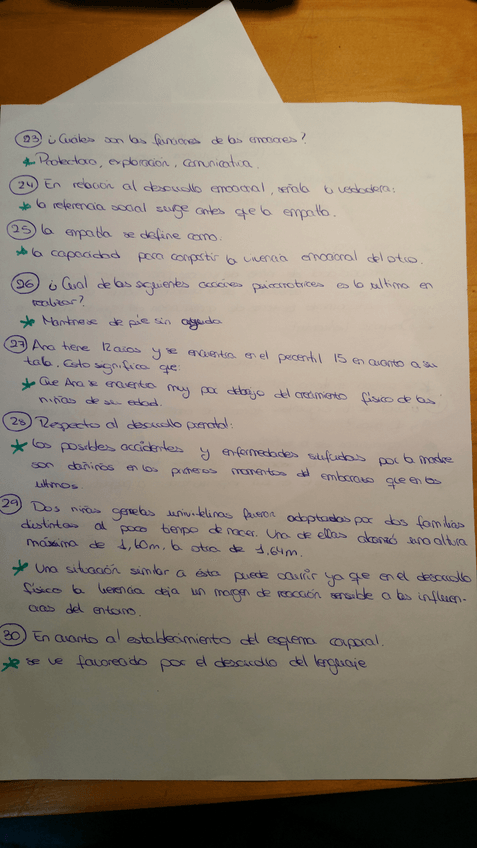 23 ¿Cuáles son las funciones de las emociones?
Protectora, exploración, comunicativa.
24 En relación al desarrollo emocional, señala la verdadera:
la referencia social surge antes que la empatía.
25 La empatía se define como:
la capacidad para compartir la vivencia emocional del otro.
26 ¿Cual de las siguientes acciones psicomotrices es la ultima en
realizar?
Mantenerse de pie sin ayuda
27 Ana tiene 12 años y se encuentra en el percentil 15 en cuanto a su
talla. Esto significa que:
Que Ana se encuentra muy por debajo del crecimiento físico de las
niñas de su edad.
28 Respecto al desarrollo prenatal:
Los posibles accidentes y enfermedades sufridas por la madre
son dañinos en los primeros momentos del embarazo que en los
ultimos
29 Dos niñas gemelas univitelinas fueron adoptadas por dos familias
distintas al poco tiempo de nacer. Una de ellas alcanzó una altura
máxima de 1,60m. la otra de 1,64m.
Una situación similar a ésta puede ocurrir ya que en el desarrollo
físico la herencia deja un margen de reacción sensible a las influen-
cias del entorno.
30 En cuanto al establecimiento del esquema corporal.
se ve favorecido por el desarrollo del lenguaje